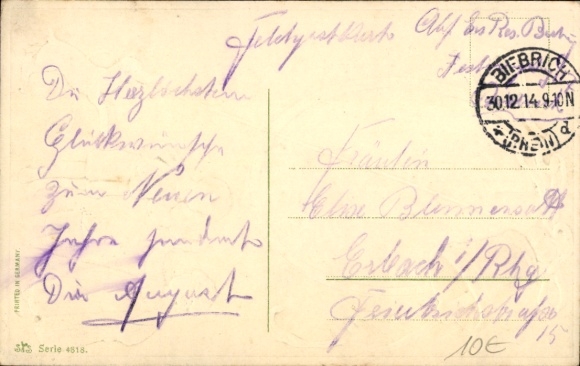 Feldpostkarte
Abs. Ers. Res.
BIEBRICH
30.12.14.9-10N
(RHEIN) d
Die Herzlichsten
Glückwünsche
zum Neuen
Jahre sendet
Dir August
Fräulein
Erbach i/Rhg
15
PRINTED IN GERMANY
Serie 4818.
10€